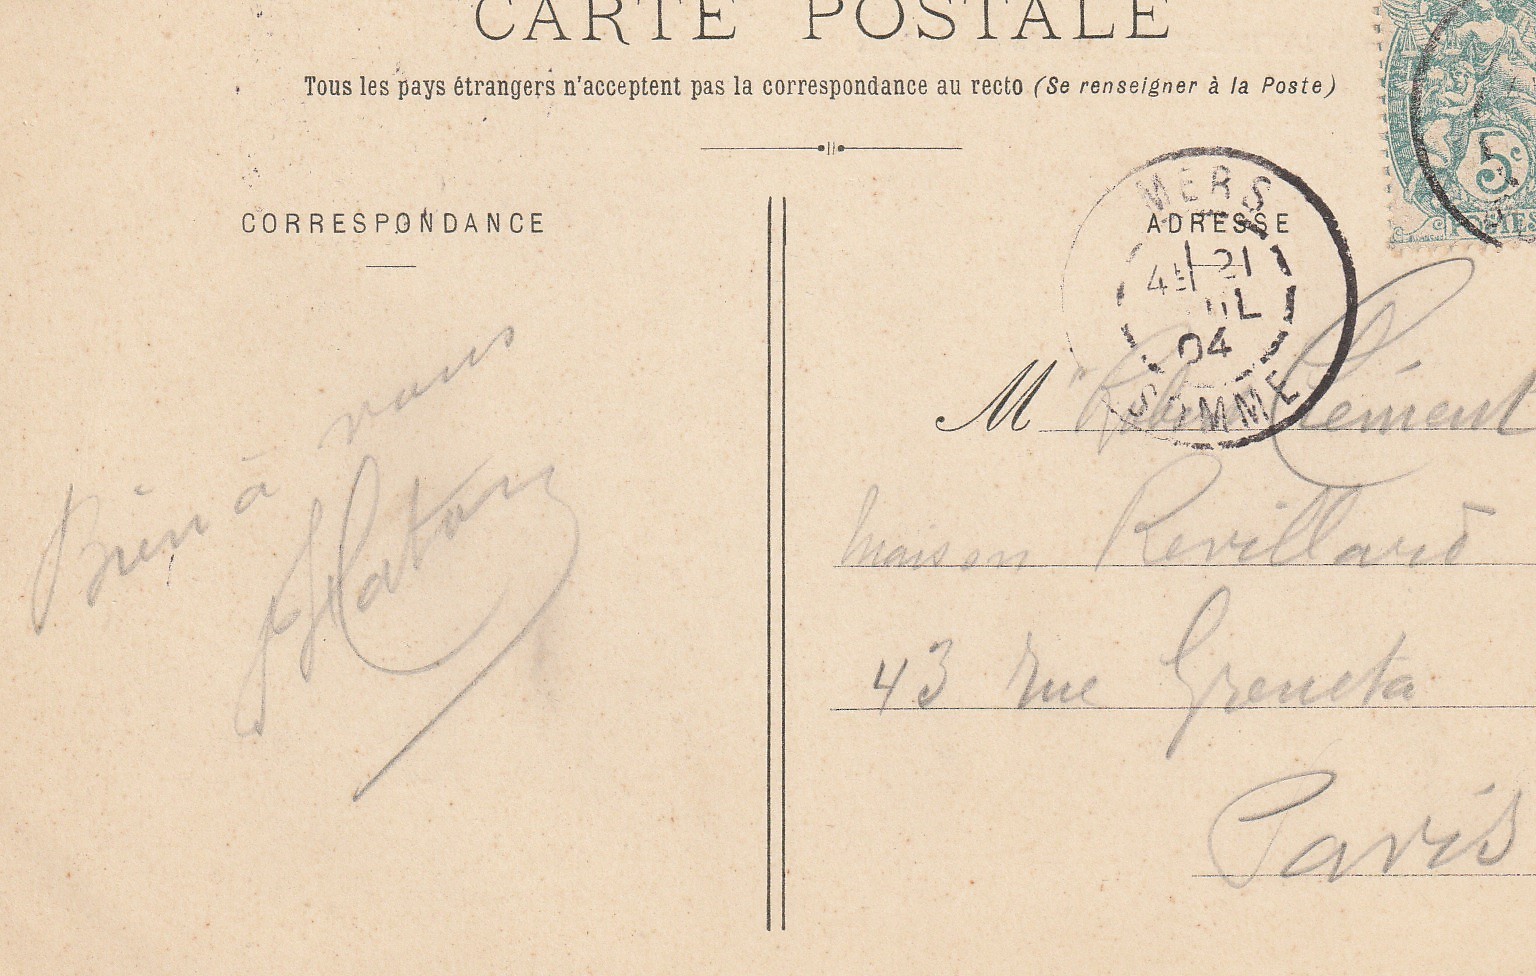 CARTE POSTALE
Tous les pays étrangers n'acceptent pas la correspondance au recto (Se renseigner à la Poste)
CORRESPONDANCE
Bien à vous
ADRESSE
MERS
4E 21
JUIL
04
SOMME
5c
POSTES
M Clément
maison Revillard
43 rue Greneta
Paris